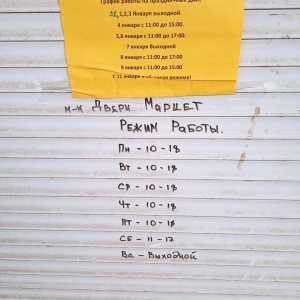 График работы на праздничные дни:
31,1,2,3 Января выходной.
4 января с 11:00 до 15:00.
5,6 января с 11:00 до 17:00.
7 января Выходной
8 января с 11:00 до 17:00
9 января с 11:00 до 17:00
С 11 января в обычном режиме!
м-н Двери Маркет
Режим Работы.
Пн - 10 - 18
Вт - 10 - 18
Ср - 10 - 18
Чт - 10 - 18
Пт - 10 - 18
Сб - 11 - 17
Вс - Выходной